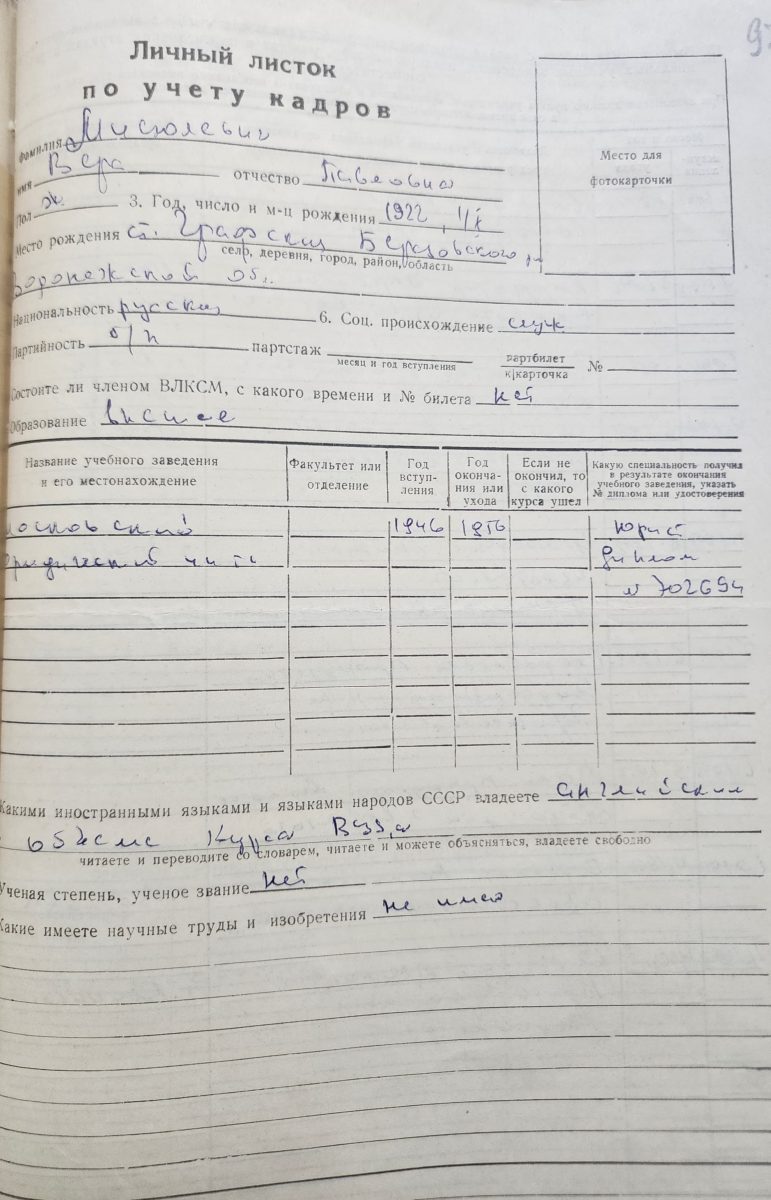 Личный листок
по учету кадров
Фамилия
имя Вера отчество Павловна
Пол ж. 3. Год, число и м-ц рождения 1922,
Место рождения ст. Графский Березовского р-
село, деревня, город, район, область
Воронежской обл.
Национальность русская 6. Соц. происхождение служ
Партийность б/п партстаж
месяц и год вступления
партбилет
к|карточка №
Состоите ли членом ВЛКСМ, с какого времени и № билета нет
Образование высшее
Место для
фотокарточки
Название учебного заведения
и его местонахождение
Факультет или
отделение
Год
вступ-
ления
Год
оконча-
ния или
ухода
Если не
окончил, то
с какого
курса ушел
Какую специальность получил
в результате окончания
учебного заведения, указать
№ диплома или удостоверения
Московский 1946 1956 Юрист
Юридический инст Диплом
№ 702694
Какими иностранными языками и языками народов СССР владеете английским
в объеме курса ВУЗ,а
читаете и переводите со словарем, читаете и можете объясняться, владеете свободно
Ученая степень, ученое звание нет
Какие имеете научные труды и изобретения не имею